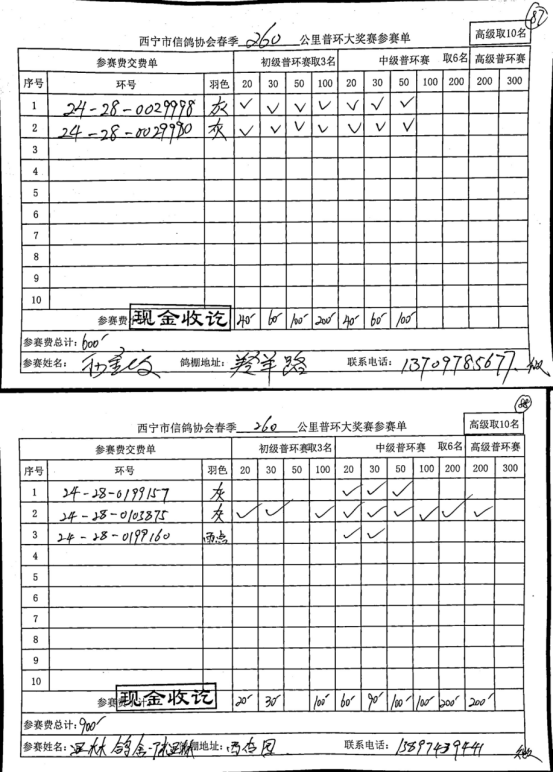 87
西宁市信鸽协会春季 260 公里普环大奖赛参赛单 高级取10名
参赛费交费单 初级普环赛取3名 中级普环赛 取6名 高级普环赛
序号 环号 羽色 20 30 50 100 20 30 50 100 200 200 300
1 24-28-0029998 灰 ✓ ✓ ✓ ✓ ✓ ✓ ✓
2 24-28-0029980 灰 ✓ ✓ ✓ ✓ ✓ ✓ ✓
3
4
5
6
7
8
9
10
参赛费 现金收讫 40 60 100 200 40 60 100
参赛费总计: 600
参赛姓名: 鸽棚地址: 羚羊路 联系电话: 13709785677
88
西宁市信鸽协会春季 260 公里普环大奖赛参赛单 高级取10名
参赛费交费单 初级普环赛取3名 中级普环赛 取6名 高级普环赛
序号 环号 羽色 20 30 50 100 20 30 50 100 200 200 300
1 24-28-0199157 灰 ✓ ✓ ✓
2 24-28-0103875 灰 ✓ ✓ ✓ ✓ ✓ ✓ ✓ ✓ ✓
3 24-28-0199160 雨点 ✓ ✓
4
5
6
7
8
9
10
参赛 现金收讫 20 30 100 60 90 100 100 200 200
参赛费总计: 900
参赛姓名: 鸽舍 鸽棚地址: 联系电话: 15897439441